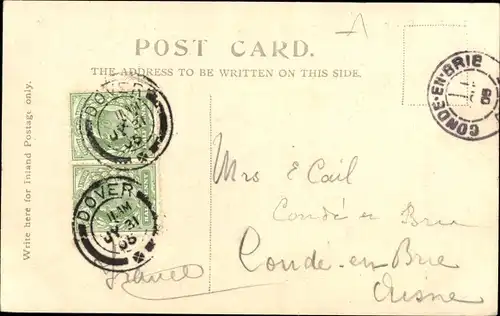 A
POST CARD.
THE ADDRESS TO BE WRITTEN ON THIS SIDE.
Write here for Inland Postage only.
DOVER
JY 31
05
DOVER
JY 31
05
CONDE-EN-BRIE
05
Mrs E Cail
Condé en Brie
Condé-en-Brie
Aisne
France